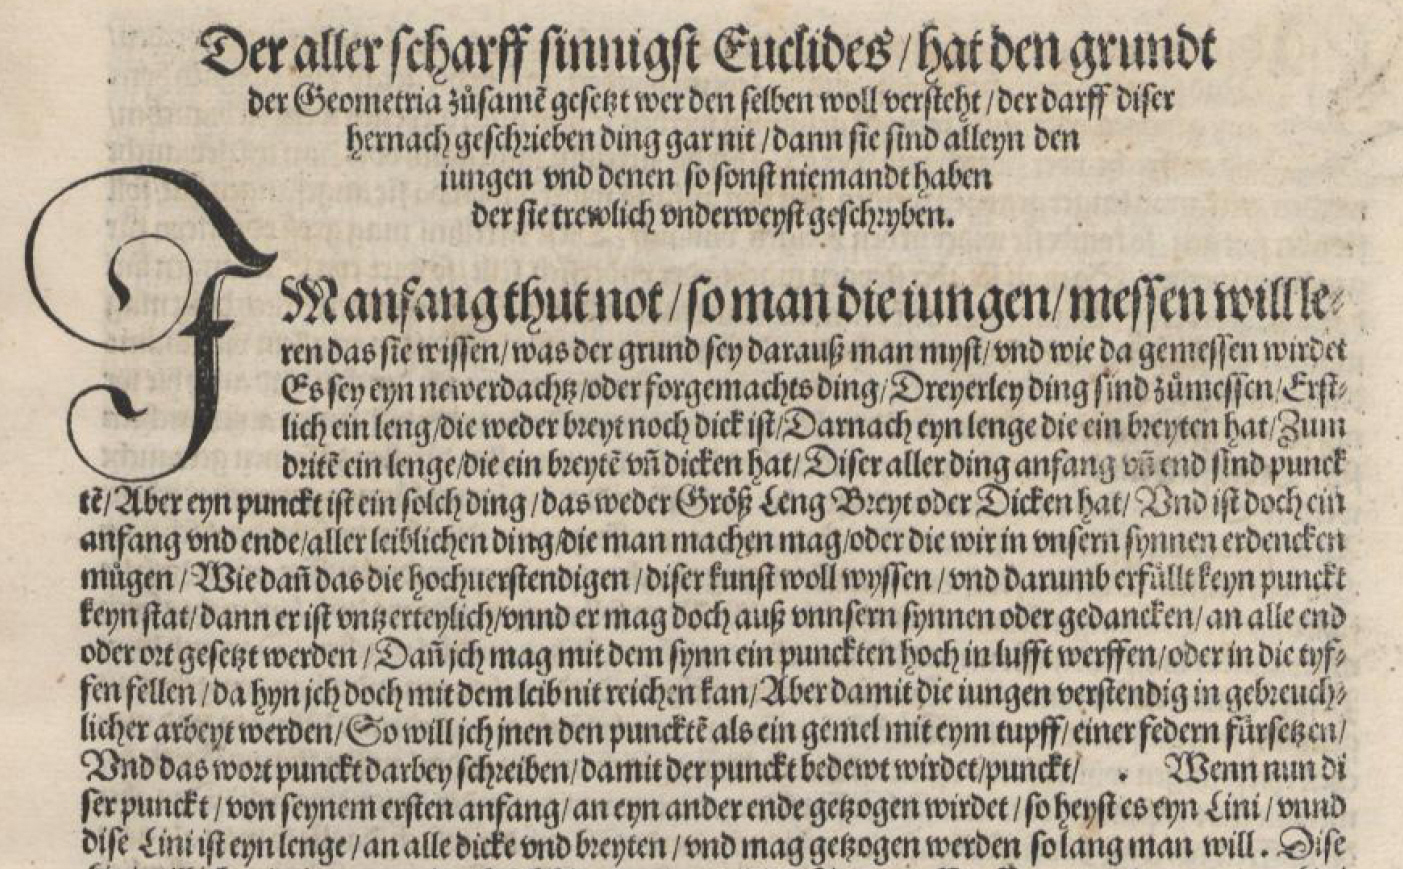 Der aller scharff sinnigst Euclides / hat den grundt
der Geometria zůsamē gesetzt wer den selben woll versteht / der darff diser
hernach geschrieben ding gar nit / dann sie sind alleyn den
iungen vnd denen so sonst niemandt haben
der sie trewlich vnderweyst geschryben.
IM anfang thut not / so man die iungen / messen will le-
ren das sie wissen / was der grund sey darauß man myst / vnd wie da gemessen wirdet
Es sey eyn newerdachtz / oder forgemachts ding / Dreyerley ding sind zůmessen / Erst-
lich ein leng / die weder breyt noch dick ist / Darnach eyn lenge die ein breyten hat / Zum
dritē ein lenge / die ein breytē vñ dicken hat / Diser aller ding anfang vñ end sind punck
tē / Aber eyn punckt ist ein solch ding / das weder Größ Leng Breyt oder Dicken hat / Vnd ist doch ein
anfang vnd ende / aller leiblichen ding / die man machen mag / oder die wir in vnsern synnen erdencken
mügen / Wie dañ das die hochuerstendigen / diser kunst woll wyssen / vnd darumb erfüllt keyn punckt
keyn stat / dann er ist vntzerteylich / vnnd er mag doch auß vnnsern synnen oder gedancken / an alle end
oder ort gesetzt werden / Dañ jch mag mit dem synn ein punckten hoch in lufft werffen / oder in die tyf-
fen fellen / da hyn jch doch mit dem leib nit reichen kan / Aber damit die iungen verstendig in gebreuch-
licher arbeyt werden / So will jch jnen den puncktē als ein gemel mit eym tupff / einer federn fürsetzen /
Vnd das wort punckt darbey schreiben / damit der punckt bedewt wirdet / punckt / . Wenn nun di
ser punckt / von seynem ersten anfang / an eyn ander ende getzogen wirdet / so heyst es eyn Lini / vnnd
dise Lini ist eyn lenge / an alle dicke vnd breyten / vnd mag getzogen werden so lang man will. Dise